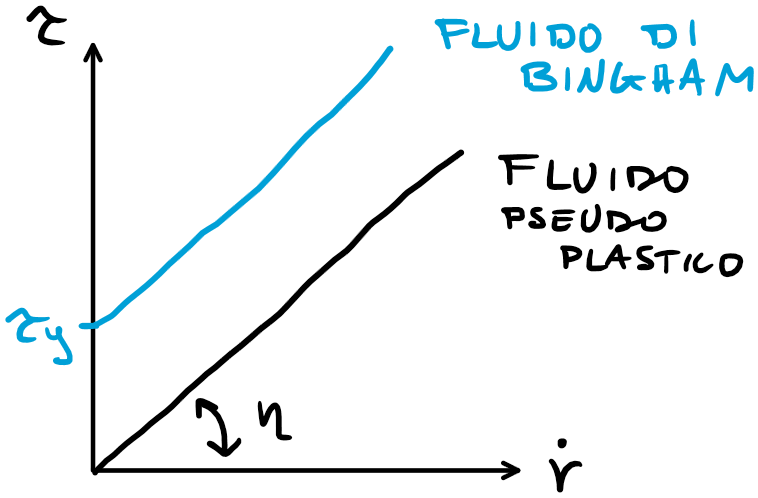 τ
FLUIDO DI
BINGHAM
FLUIDO
PSEUDO
PLASTICO
τy
η
γ̇